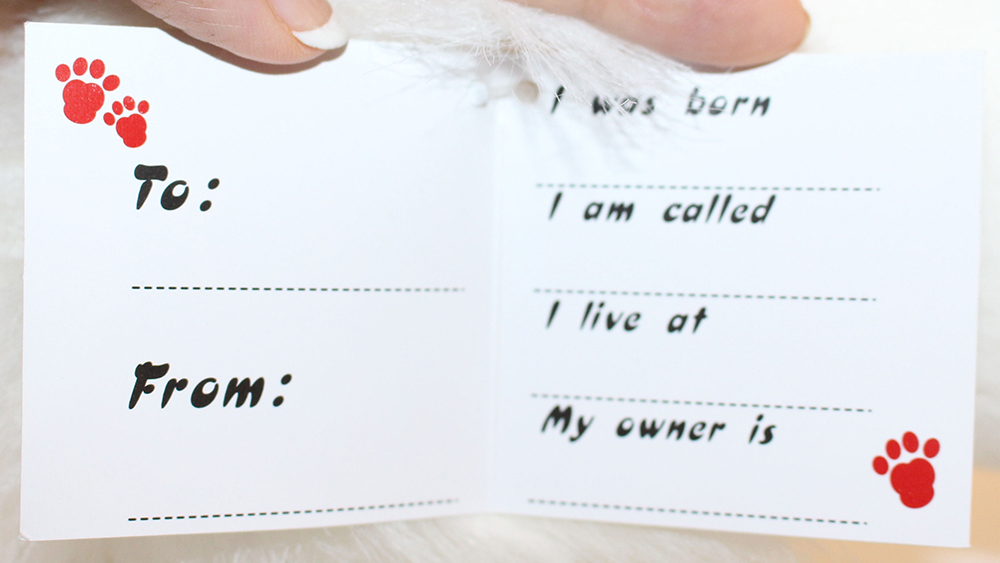 To:
From:
I was born
I am called
I live at
My owner is